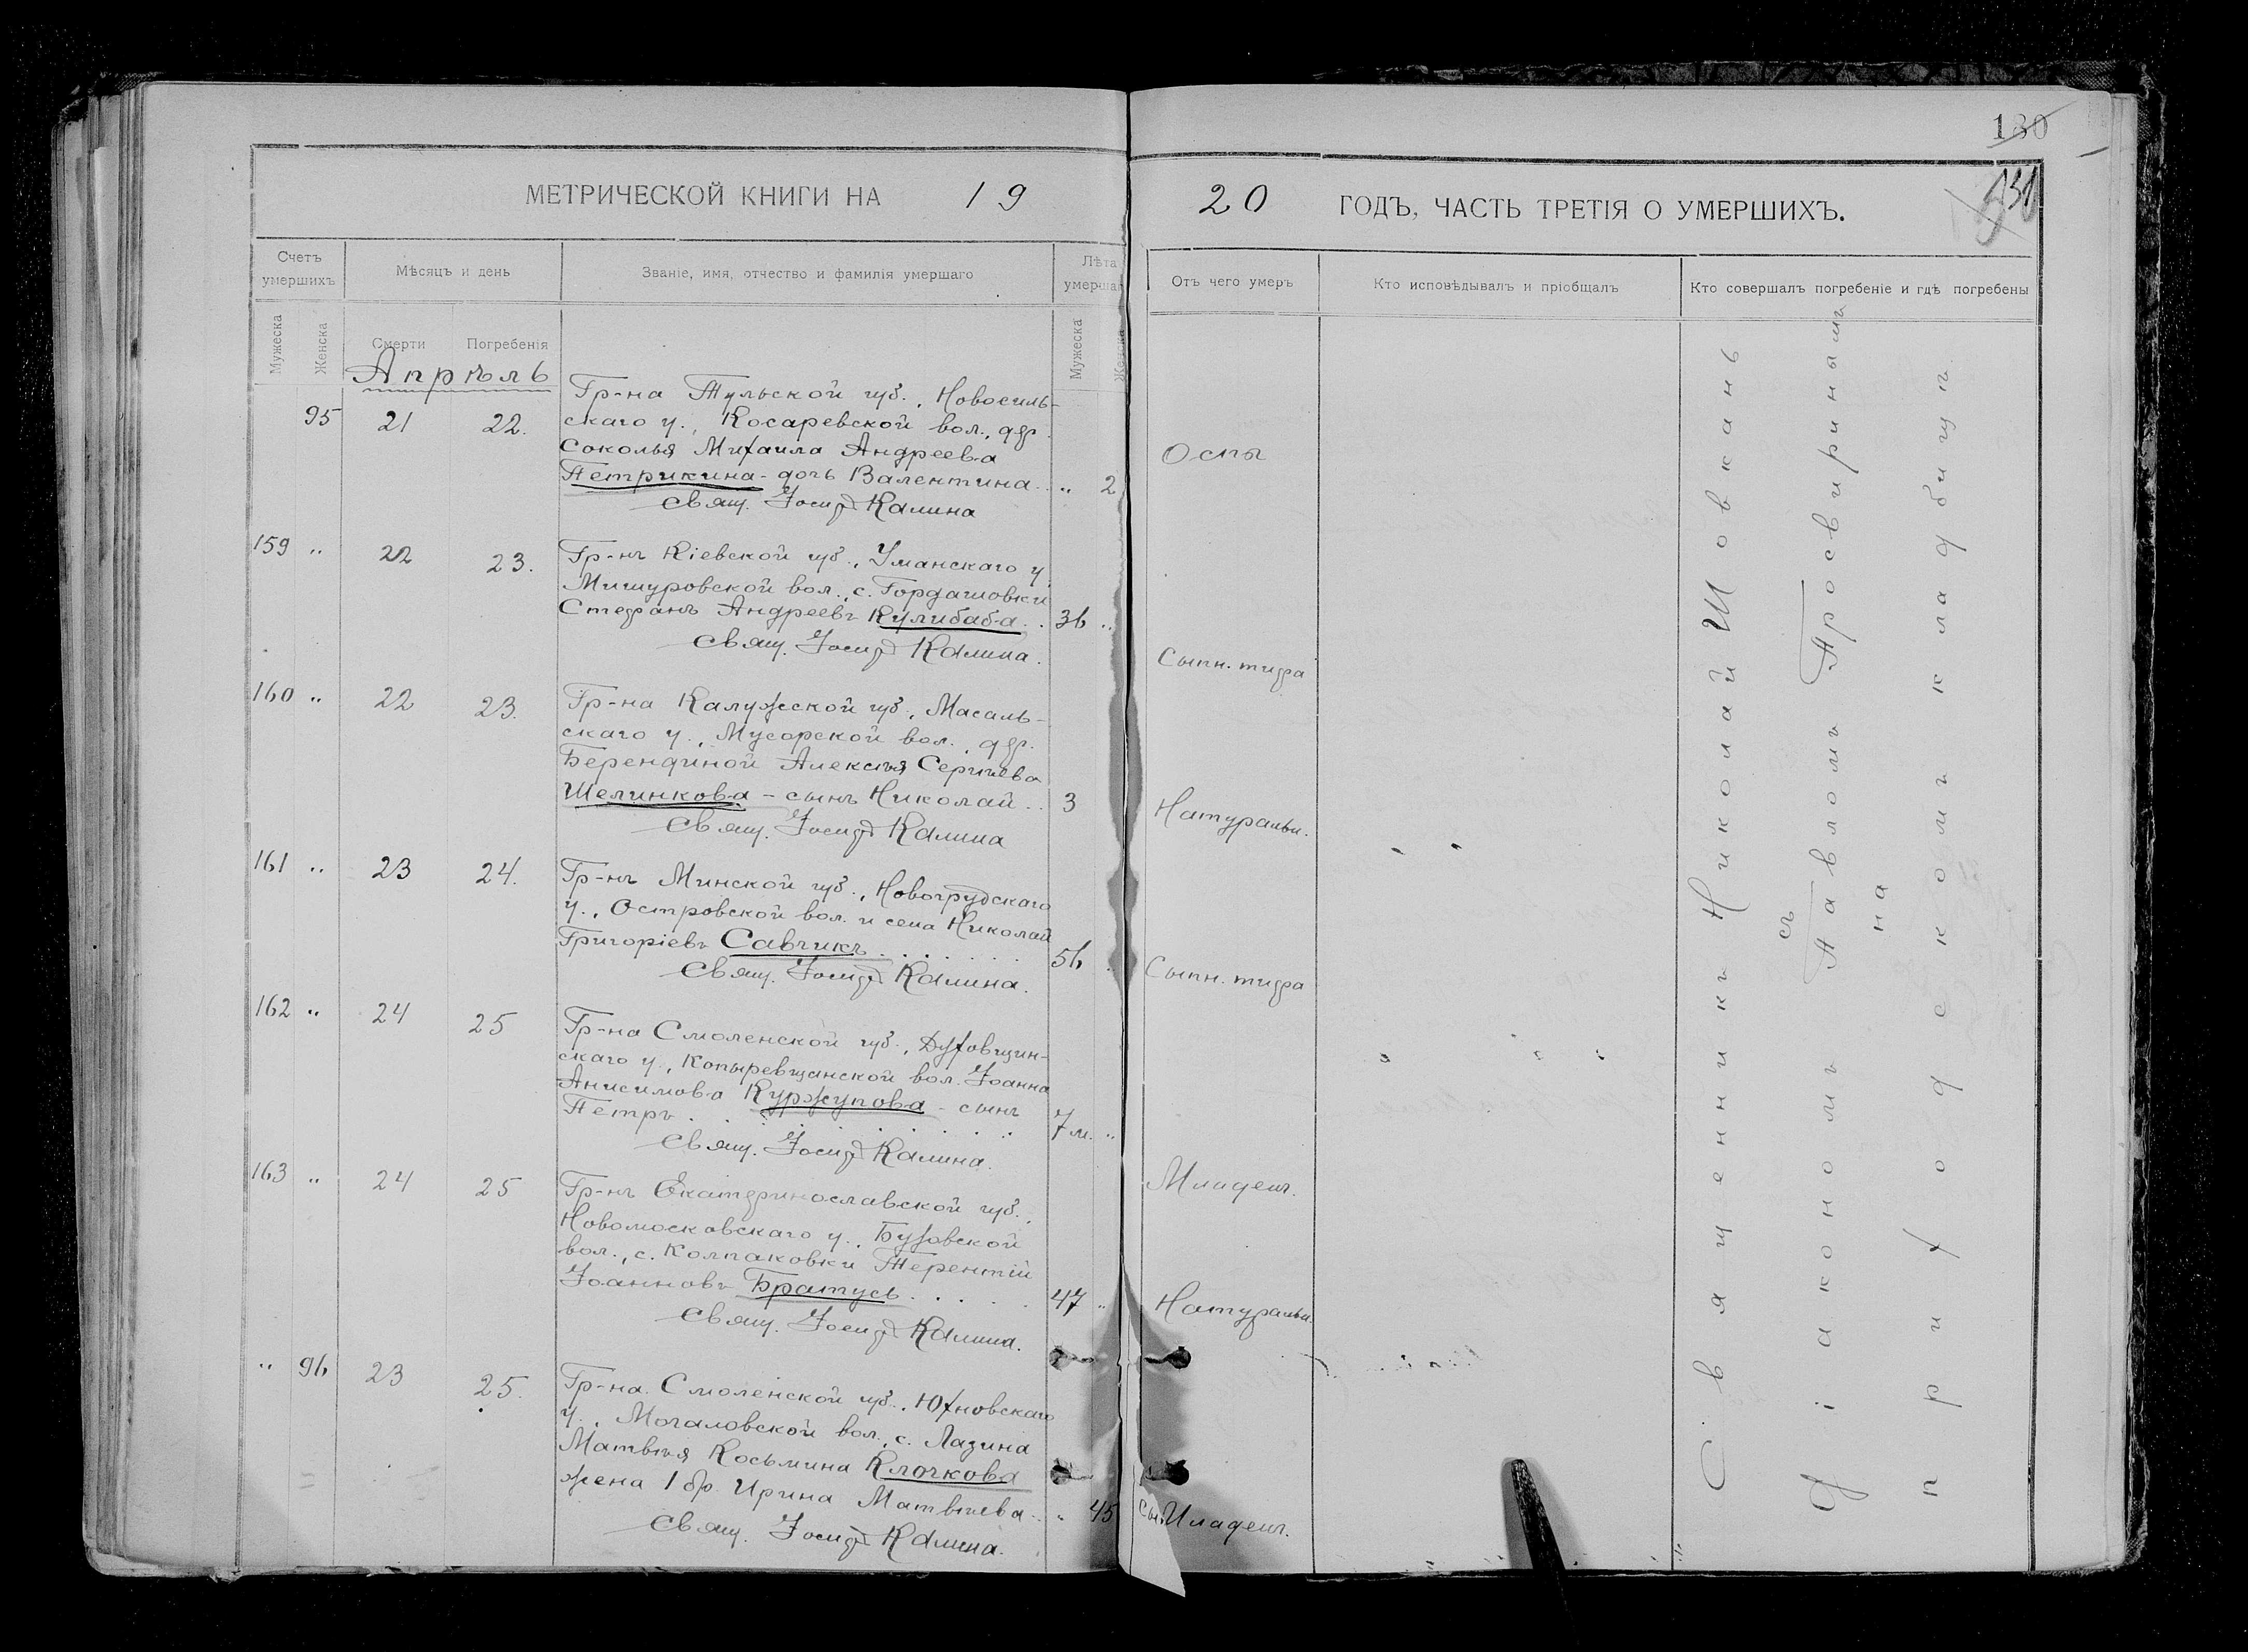 130
МЕТРИЧЕСКОЙ КНИГИ НА 19
20 ГОДЪ, ЧАСТЬ ТРЕТІЯ О УМЕРШИХЪ.
Счетъ умершихъ
Мѣсяцъ и день
Званіе, имя, отчество и фамилія умершаго
Лѣта умершаг
Отъ чего умеръ
Кто исповѣдывалъ и пріобщалъ
Кто совершалъ погребеніе и гдѣ погребены
Мужеска
Женска
Смерти
Погребенія
Мужеска
Женска
Апрѣль
95 21 22.
Гр-на Тульской губ., Новосиль-
скаго у., Косаревской вол., дер.
Соколья Михаила Андреева
Петрикина - дочь Валентина . . „ 2
Оспы
Свящ. Іосифъ Калина
159 „ 22 23.
Гр-нъ Кіевской губ., Уманскаго у.
Мишуровской вол., с. Гордашовки
Стефанъ Андреевъ Кулибаба . . 36 „
Свящ. Іосифъ Калина.
Сыпн. тифа
160 „ 22 23.
Гр-на Калужской губ., Масаль-
скаго у., Мусорской вол., дер.
Берендиной Алексѣя Сергѣева
Шелинкова - сынъ Николай . . 3
Натуральн.
Свящ. Іосифъ Калина
161 „ 23 24.
Гр-нъ Минской губ., Новогрудскаго
у., Островской вол. и села Николай
Григоріевъ Савчикъ . . . . . . 56
Свящ. Іосифъ Калина.
Сыпн. тифа
162 „ 24 25
Гр-на Смоленской губ., Духовщин-
скаго у., Копыревщанской вол. Іоанна
Анисимова Куржупова - сынъ
Петръ . . . . . . . . . 7 м. „
Свящ. Іосифъ Калина.
Младенч.
163 „ 24 25
Гр-нъ Екатеринославской губ.,
Новомосковскаго у., Бузовской
вол., с. Колпаковки Терентій
Іоанновъ Братусь . . . . . 47 „
Натуральн.
Свящ. Іосифъ Калина.
„ 96 23 25.
Гр-на Смоленской губ., Юхновскаго
у., Мочаловской вол., с. Лазина
Матвѣя Косьмина Клочкова
жена 1 бр. Ирина Матвѣева . . „ 45
Младенч.
Свящ. Іосифъ Калина.
Священникъ Николай Шовкань
съ
діакономъ Павломъ Просвиринымъ
на
приходскомъ кладбищѣ